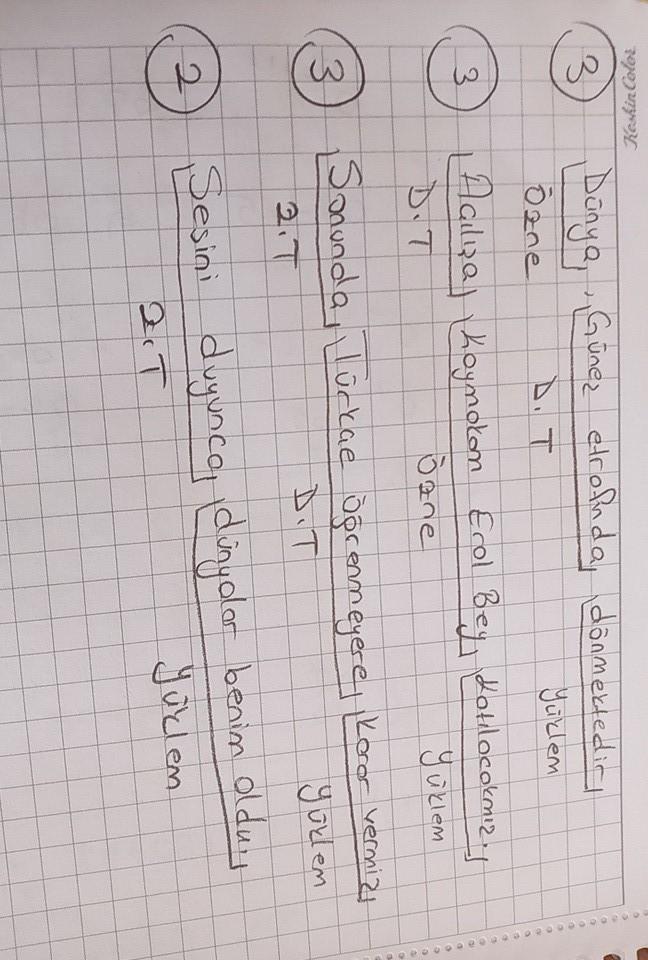 Keskin Color
3 Dünya, Güneş etrafında dönmektedir
Özne D.T Yüklem
3 Açılışa Kaymakam Erol Bey katılacakmış.
D.T Özne Yüklem
3 Sonunda Türkçe öğrenmeye karar vermiş
Z.T D.T Yüklem
2 Sesini duyunca dünyalar benim oldu.
Z.T Yüklem